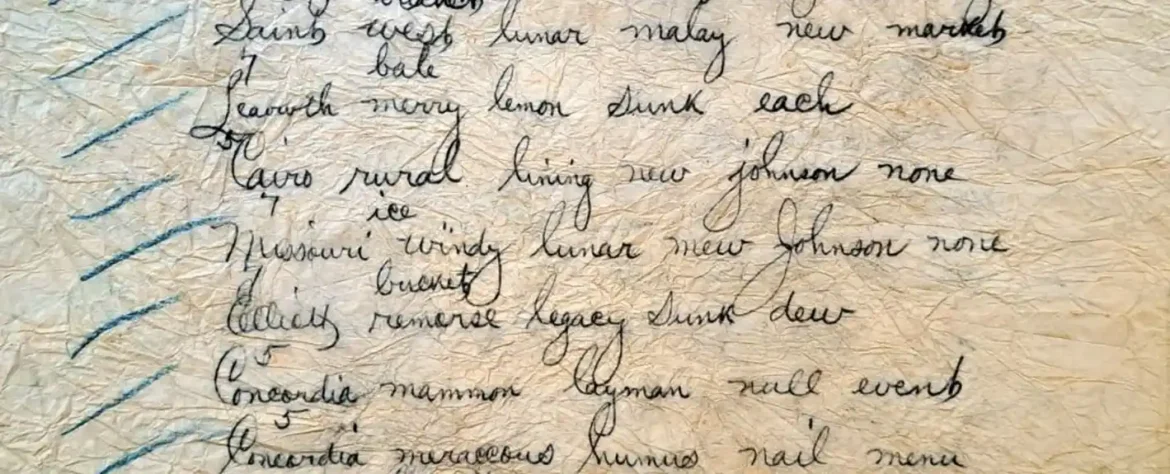 Saint west lunar malay new market
7 bale
Leavwth merry lemon Sunk each
5
Cairo rural lining new johnson none
7 ice
Missouri windy lunar mew Johnson none
9 bucket
Elliott remorse legacy Sunk dew
5
Concordia mammon layman null event
5
Concordia meraccous humus nail menu